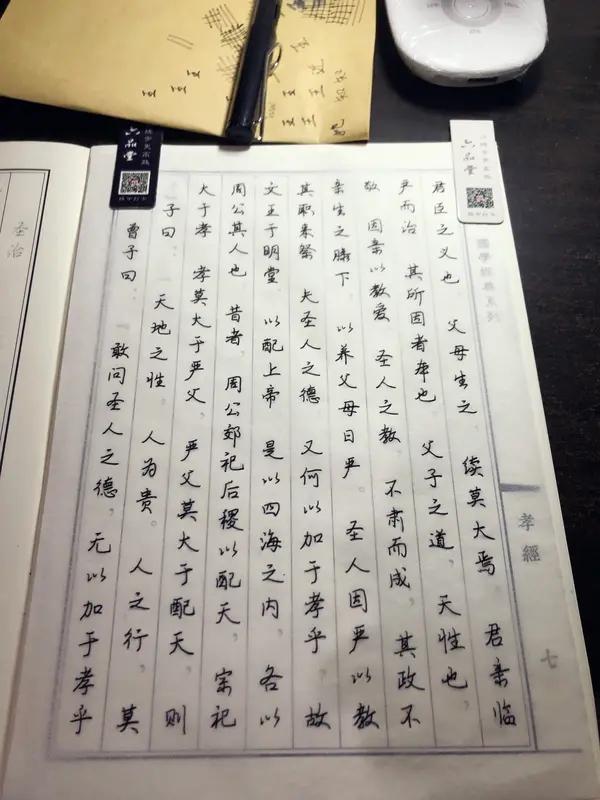 圣治
曾子曰：「敢问圣人之德，无以加于孝乎
子曰：「天地之性，人为贵。人之行，莫
大于孝，孝莫大于严父，严父莫大于配天，则
周公其人也。昔者，周公郊祀后稷以配天，宗祀
文王于明堂，以配上帝。是以四海之内，各以
其职来祭。夫圣人之德，又何以加于孝乎。故
亲生之膝下，以养父母日严。圣人因严以教
敬，因亲以教爱。圣人之教，不肃而成，其政不
严而治，其所因者本也。父子之道，天性也，
君臣之义也。父母生之，续莫大焉。君亲临
國學經典系列
孝經
七
六品堂
练字打卡
六品堂
练字打卡